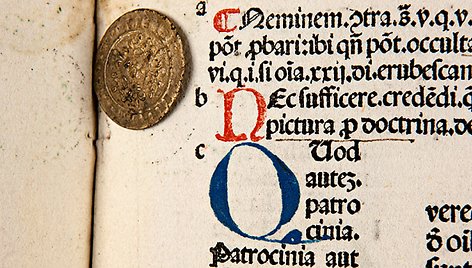 a
¶ Neminem.ↄtra.s̄.v.q.v.
pōt.ꝓbari:ibi qn̄ pōt.occulta
vi.q.i.si oīa.xxij.di.erubescan
b
NEc sufficere.credēdi.q
pictura.ꝓ doctrina.de
c
QUod
autez.
patro
cinia.
Patrocinia aut
vere
d̄ oi
sunt